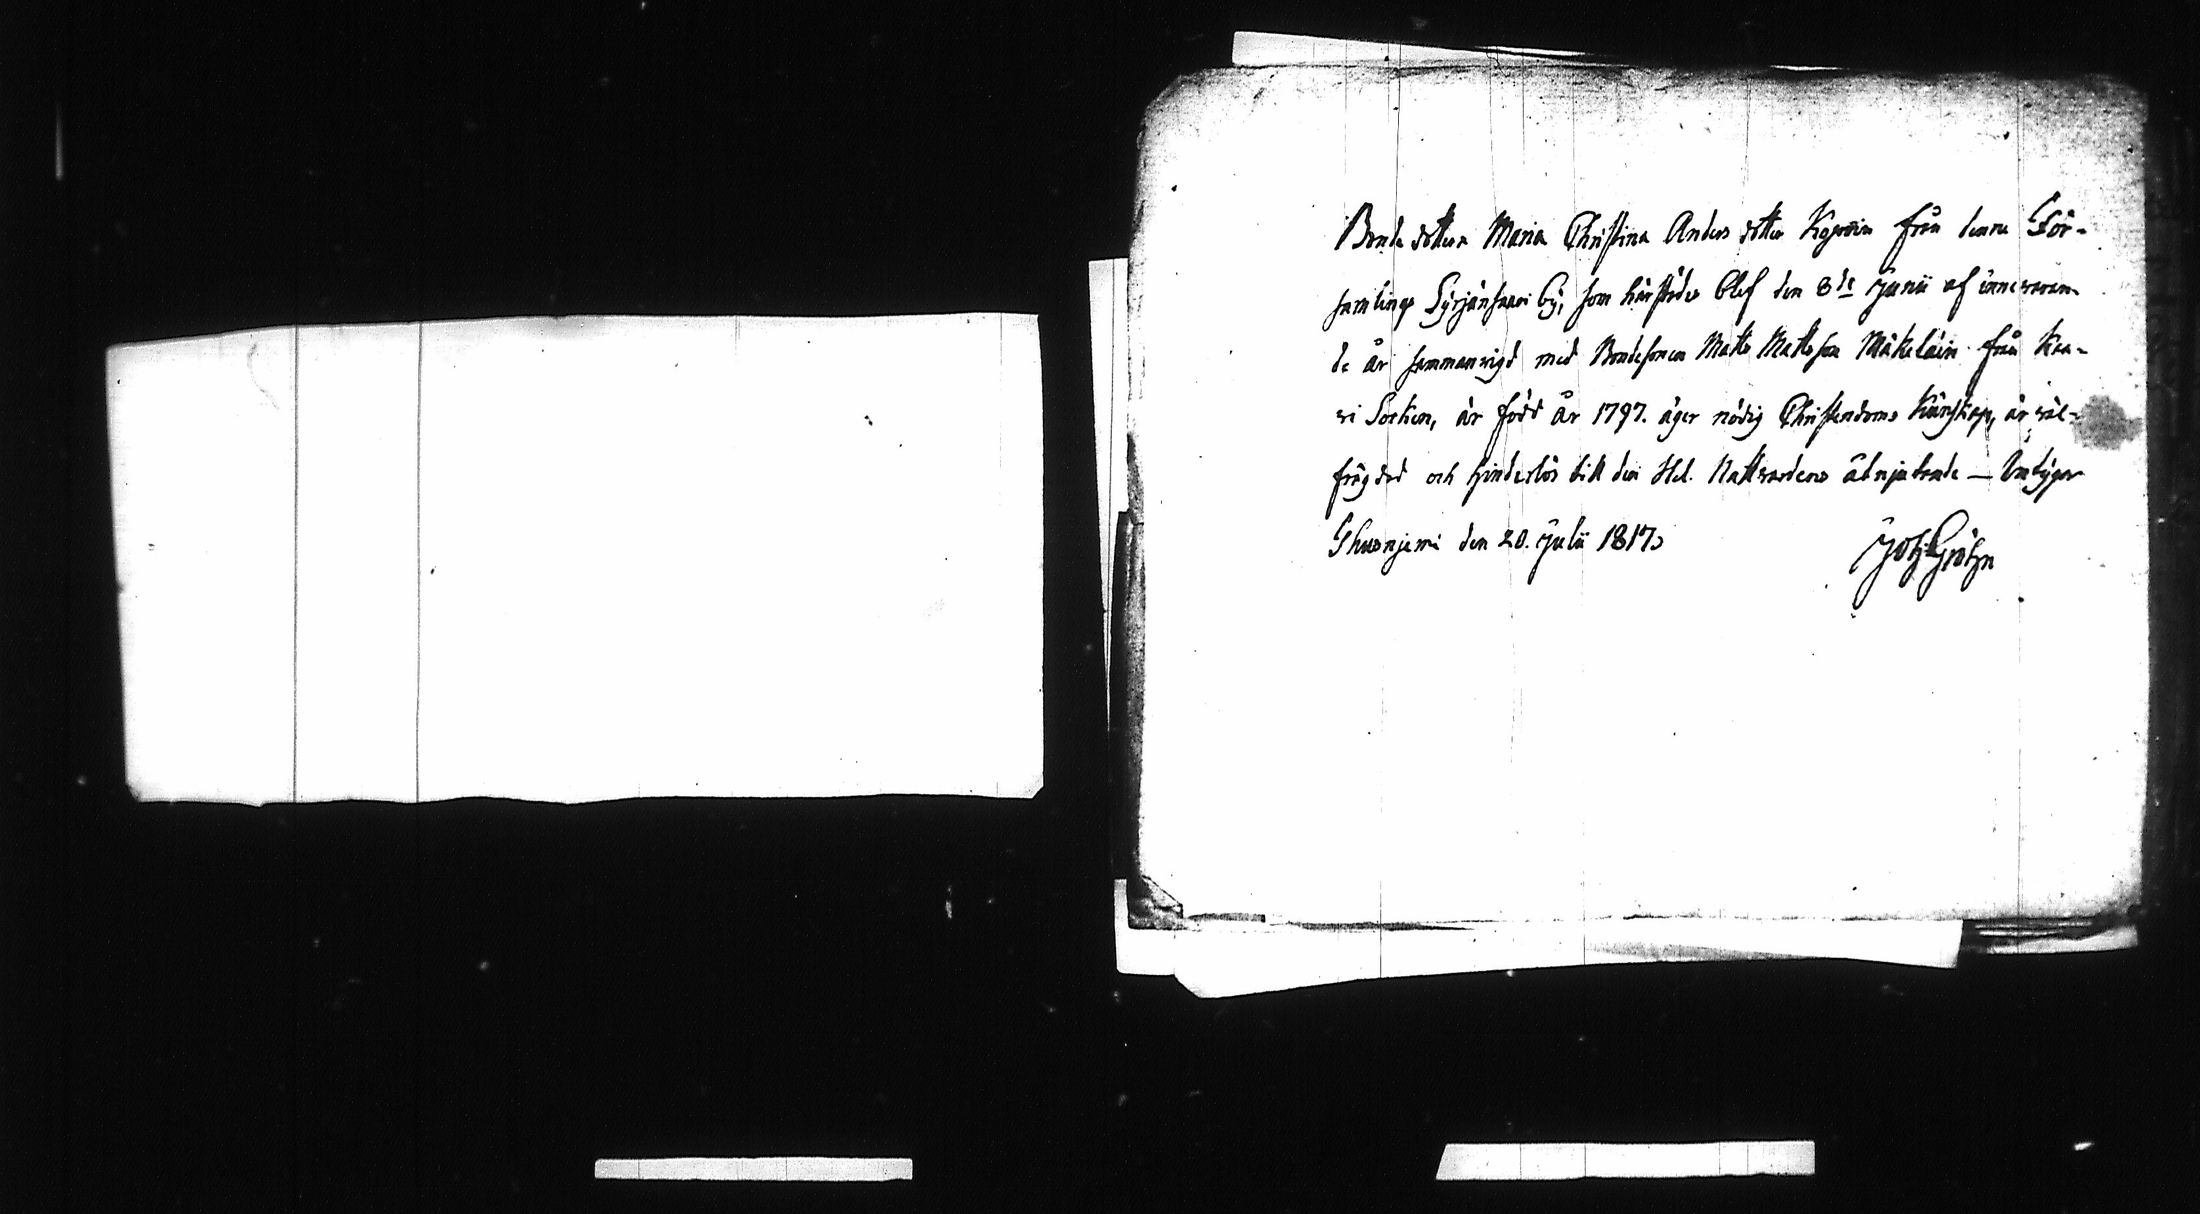 Bonde dottren Maria Christina Anders dotter Kopoin från denna För-
samlings Syrjänsaari by, som härstädes blef den 8de Junii af innevaran-
de år sammanvigd med Bondesonen Matts Mattsson Mäkeläin från Kaa-
vi Socken, är född år 1797. äger nödig Christendoms Kunskap, är väl-
frägdad och hinderlös till den Hel. Nattvardens åtnjutande — Betygar
Ghusnjemi den 20. Julii 1817.
Joh. Gröhn